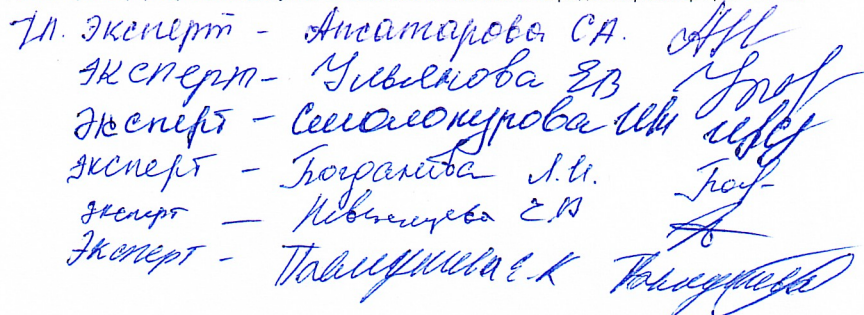 Гл. эксперт - Ажатарова С.А.
эксперт - Ульянова Е В
эксперт - Смолокурова ИМ
эксперт - Богданова Л.И.
эксперт — Е В
Эксперт - Павлушева Е.К